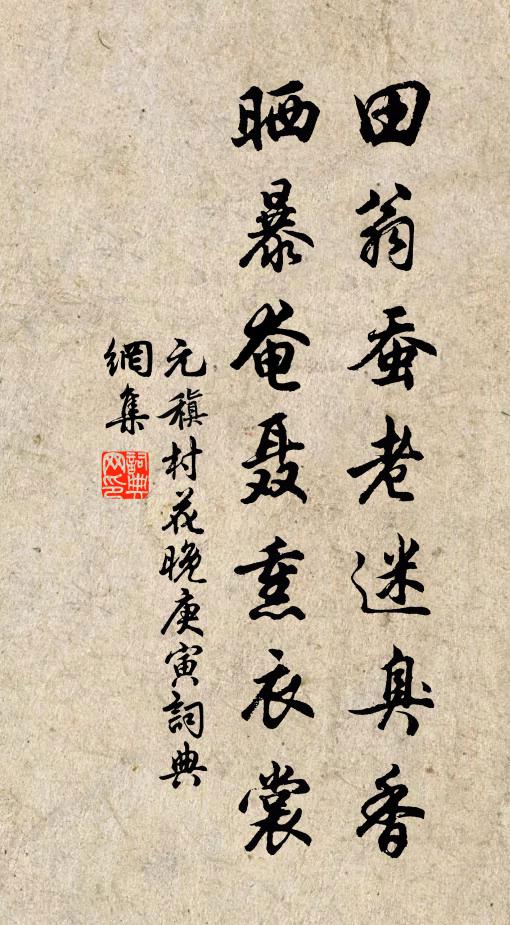 田翁蚕老迷臭香
晒暴奄聂熏衣裳
元稹村花晚庚寅詞典
網集
詞典
网印